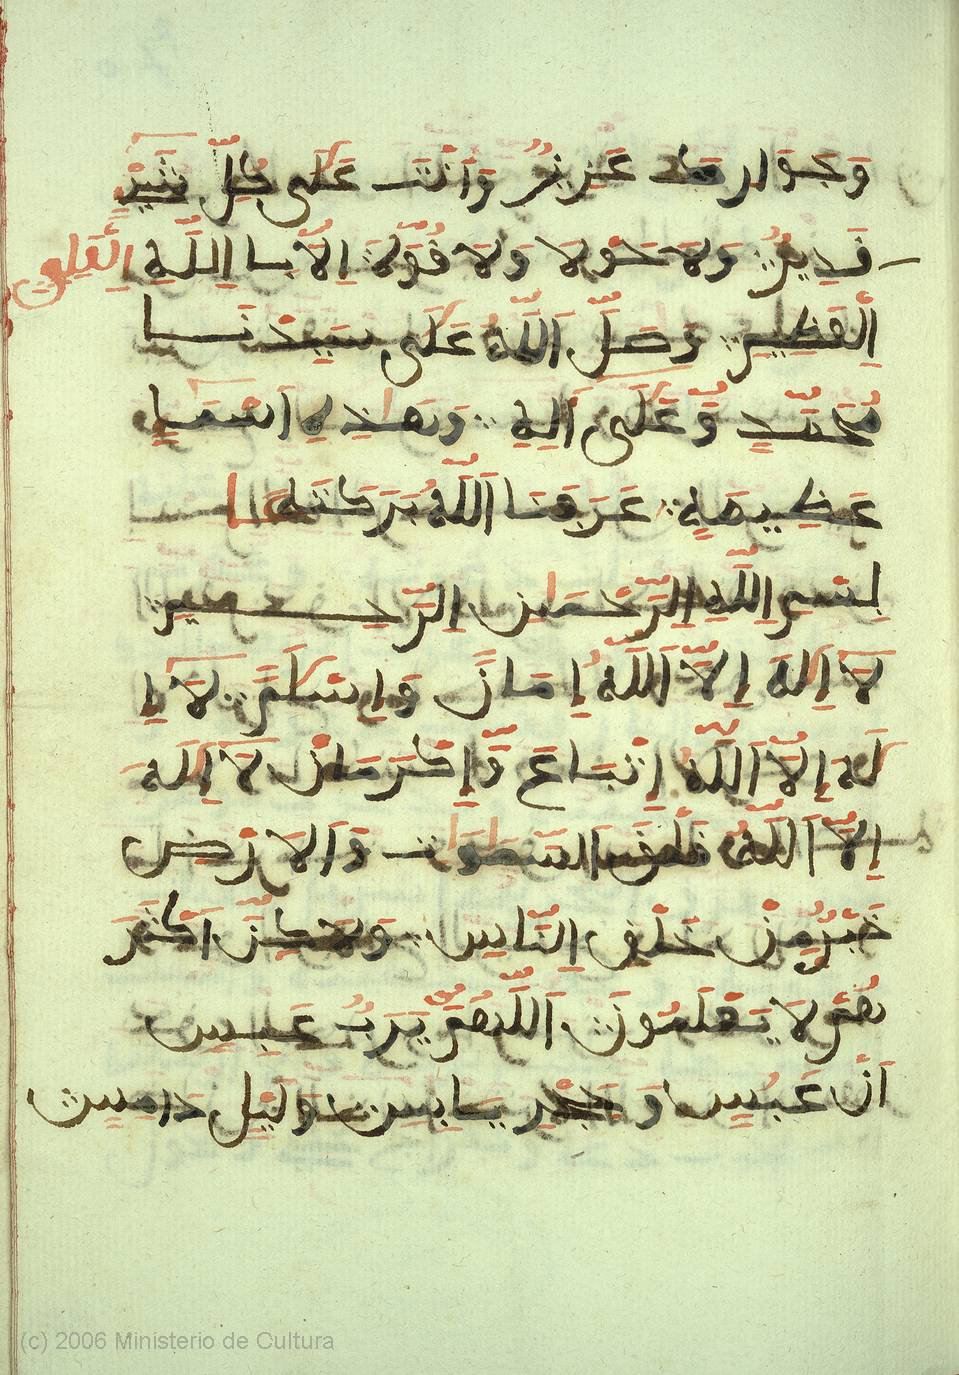 وَجَوَارِ عَزِيزٌ وَأَنْتَ عَلَى كُلِّ شَيْءٍ
قَدِيرٌ وَلَا حَوْلَا وَلَا قُوَّةَ إِلَّا بِا اللَّهِ الْعَلِيِّ
الْعَظِيمِ وَصَلَّ اللَّهُ عَلَى سَيِّدِنَا
مُحَمَّدٍ وَّعَلَى آلِهِ وَهَذِهِ اَسْمَا
عَظِيمَةٍ عَرَفَنَا اللَّهُ بَرَكَتَهَا
بِسْمِ اللَّهِ الرَّحْمَنِ الرَّحِيمِ
لَا إِلَهَ إِلَّا اللَّهُ إِمَانً وَإِسْلَمً لَا إِ
لَهَ إِلَّا اللَّهُ وَّإِ لَا إِلَهَ
إِلَّا اللَّهُ خَلْقُ السَّمَوَاتِ وَالَارْضِ
خَبَرُ مِنْ خَلْقِ النَّاسِ وَلَكِنَّ أَكْثَرَ
هُمْ لَا يَعْلَمُونَ اللَّهُمَّ يَرَبُّ عَبِسٍ
اَنْ عَبِسٍ وَ حَجَرٍ يَابِسٍ وَلَيْلٍ دَامِسٍ
(c) 2006 Ministerio de Cultura